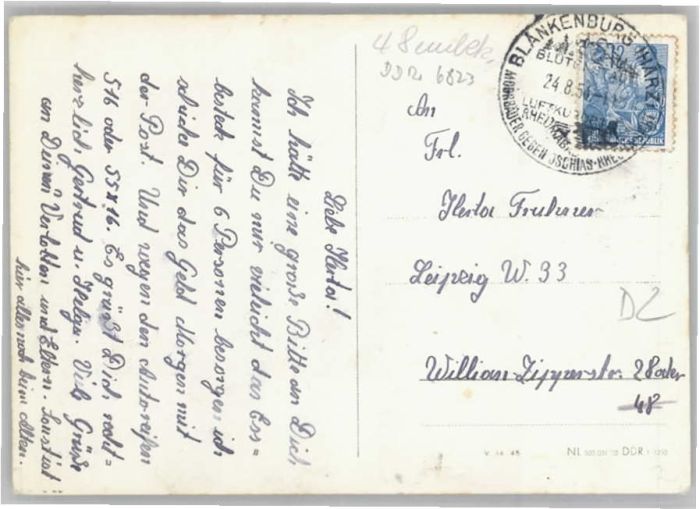 Liebe Herta!
Ich hätte eine große Bitte an Dich
kannst Du mir vieleicht das Ess=
besteck für 6 Personen besorgen ich
schicke Dir das Geld Morgen mit
der Post. Und wegen den Autoreifen
5x16 oder 55x16. Es grüßt Dich recht=
herzlich Gertrud u. Helga. Viele Grüße
an Deinen Verlobten und Eltern. Sonst ist
hier alles noch beim Alten.
DDR 6823
BLANKENBURG (HARZ)
24.8.5
LUFTKURORT
MOORBÄDER GEGEN ISCHIAS-RHEU
An
Frl.
Herta
Leipzig W. 33
William Zipperstr. 28 oder
48
DZ
V 14 45
NL DDR